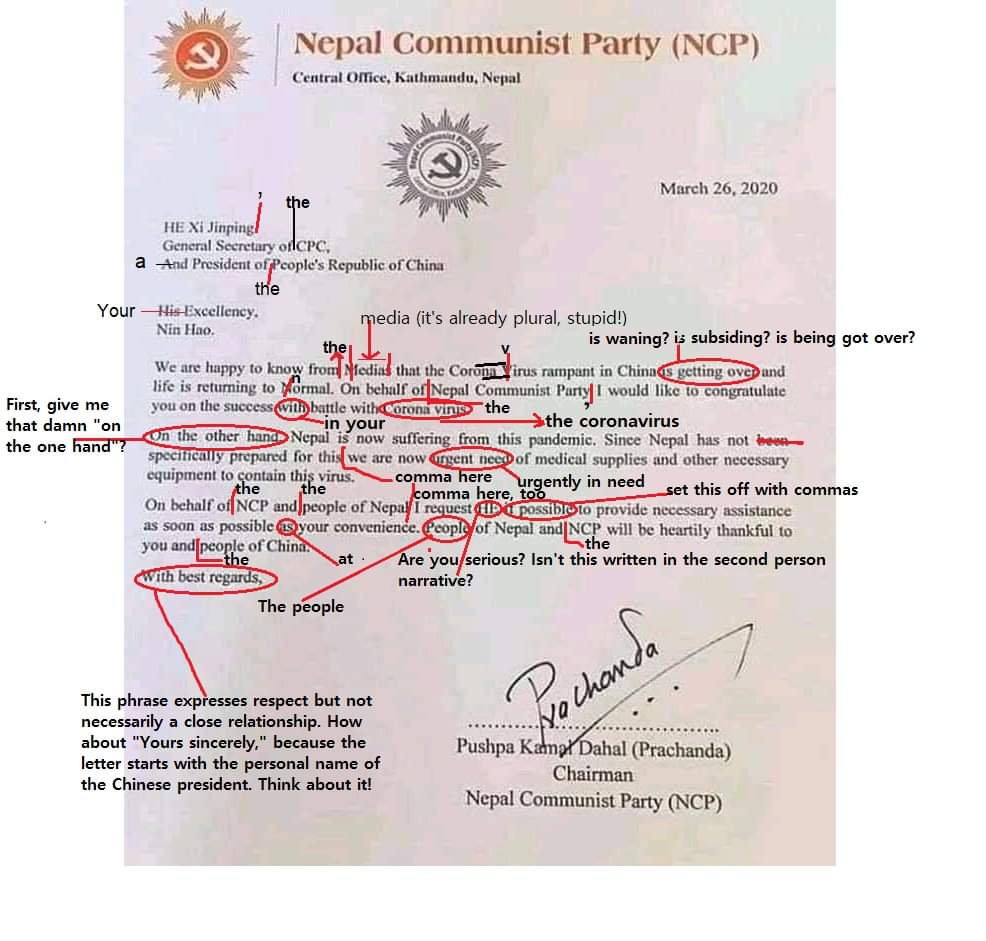 Nepal Communist Party (NCP)
Central Office, Kathmandu, Nepal
Nepal Communist Party (NCP)
Central Office, Kathmandu
March 26, 2020
,
the
HE Xi Jinping
General Secretary of CPC,
a And President of People's Republic of China
the
Your His Excellency,
Nin Hao.
media (it's already plural, stupid!)
is waning? is subsiding? is being got over?
the
v
We are happy to know from Medias that the Corona Virus rampant in China is getting over and
n
life is returning to Normal. On behalf of Nepal Communist Party I would like to congratulate
,
you on the success with battle with Corona virus. the
in your
the coronavirus
First, give me
that damn "on
the one hand"?
On the other hand, Nepal is now suffering from this pandemic. Since Nepal has not been
specifically prepared for this we are now urgent need of medical supplies and other necessary
equipment to contain this virus.
comma here
urgently in need
the
the
comma here, too
set this off with commas
On behalf of NCP and people of Nepal I request HE if possible to provide necessary assistance
as soon as possible as your convenience. People of Nepal and NCP will be heartily thankful to
the
you and people of China.
the
at
Are you serious? Isn't this written in the second person
narrative?
With best regards,
The people
This phrase expresses respect but not
necessarily a close relationship. How
about "Yours sincerely," because the
letter starts with the personal name of
the Chinese president. Think about it!
Prachanda
Pushpa Kamal Dahal (Prachanda)
Chairman
Nepal Communist Party (NCP)